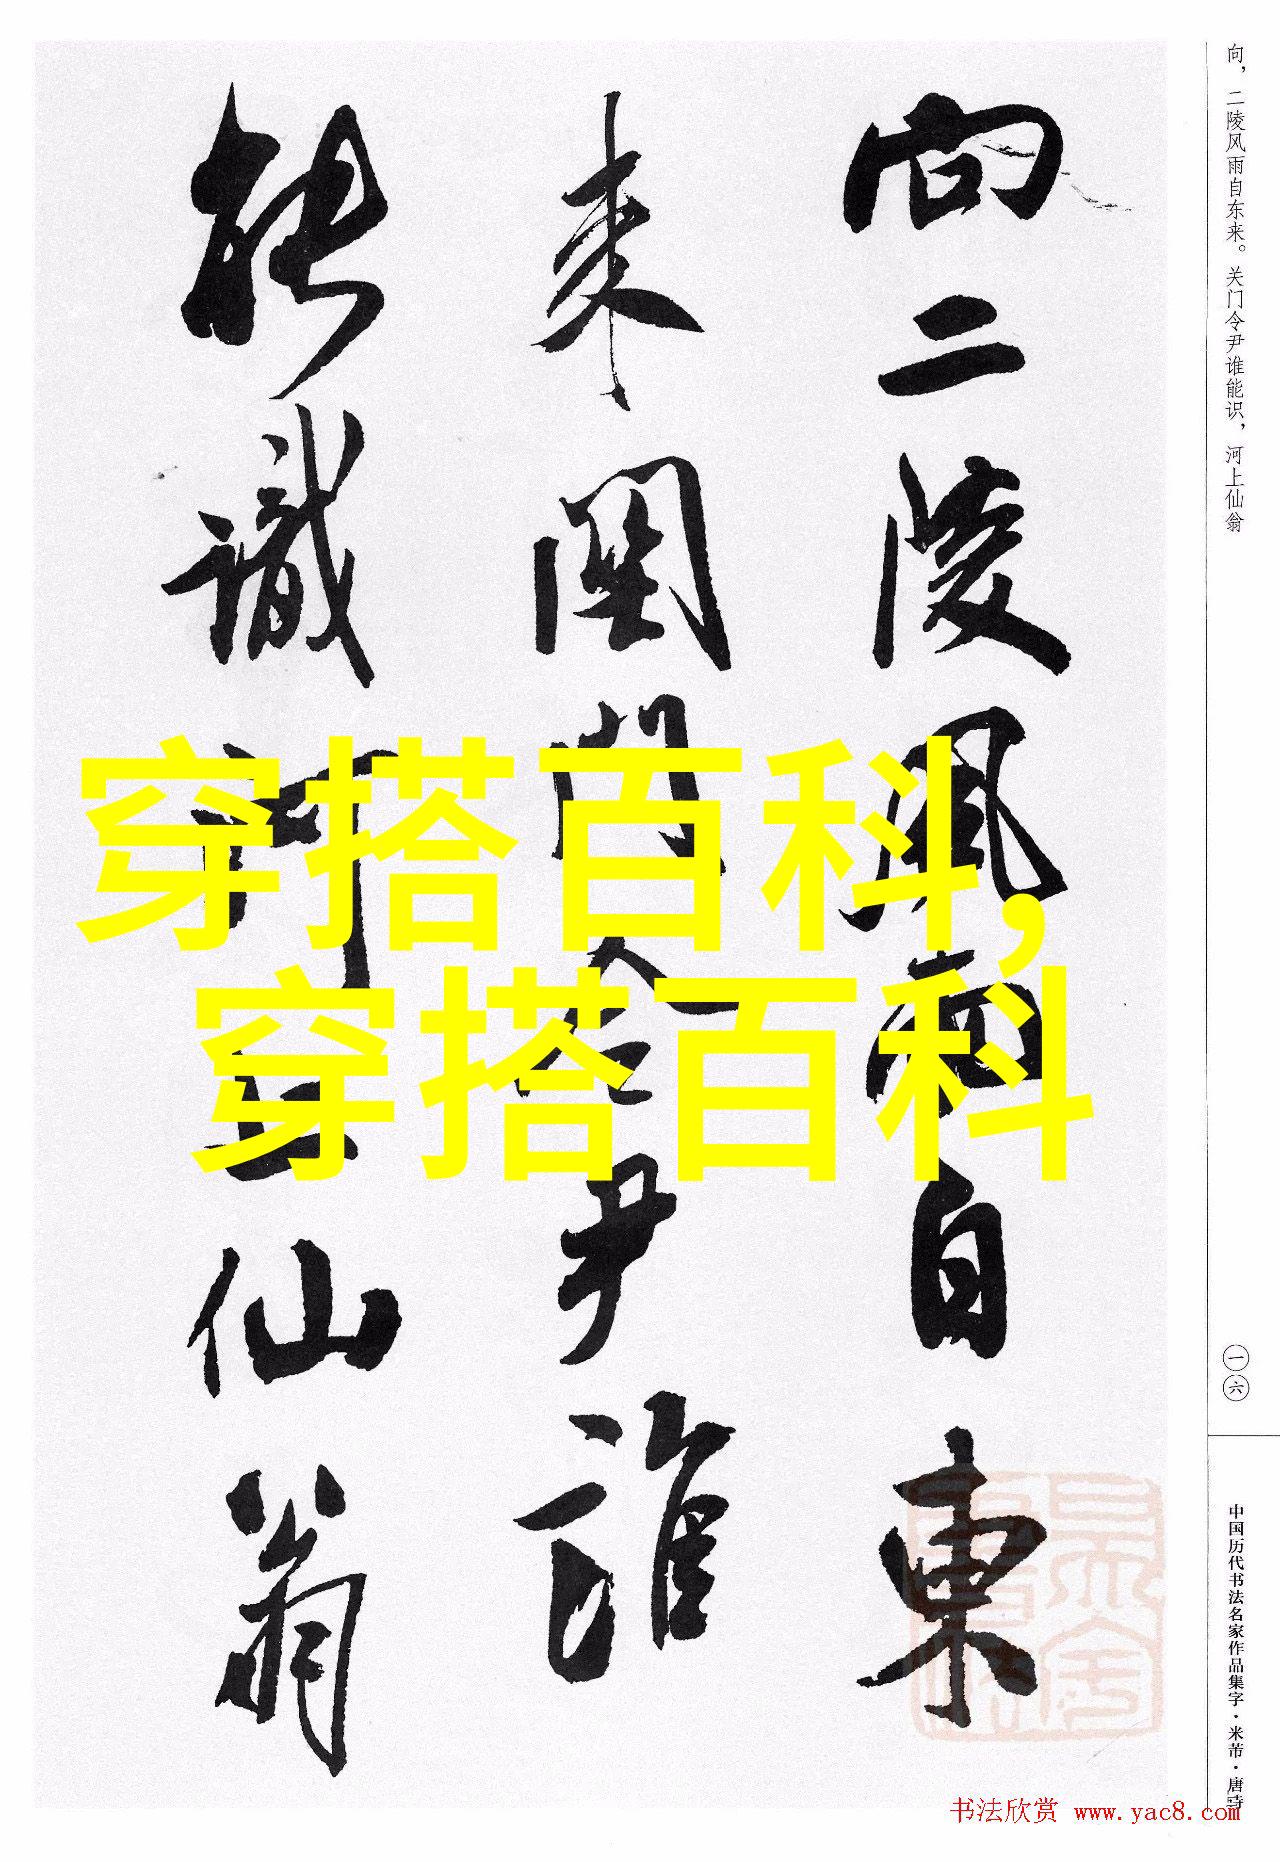 向二陵风雨自東
来関門令尹誰
能識河上仙翁
穿搭百科,
穿搭百科
向，二陵风雨自东来。关门令尹谁能识，河上仙翁
一六
中国历代书法名家作品集字·米芾·唐诗
书法欣赏 www.yac8.com